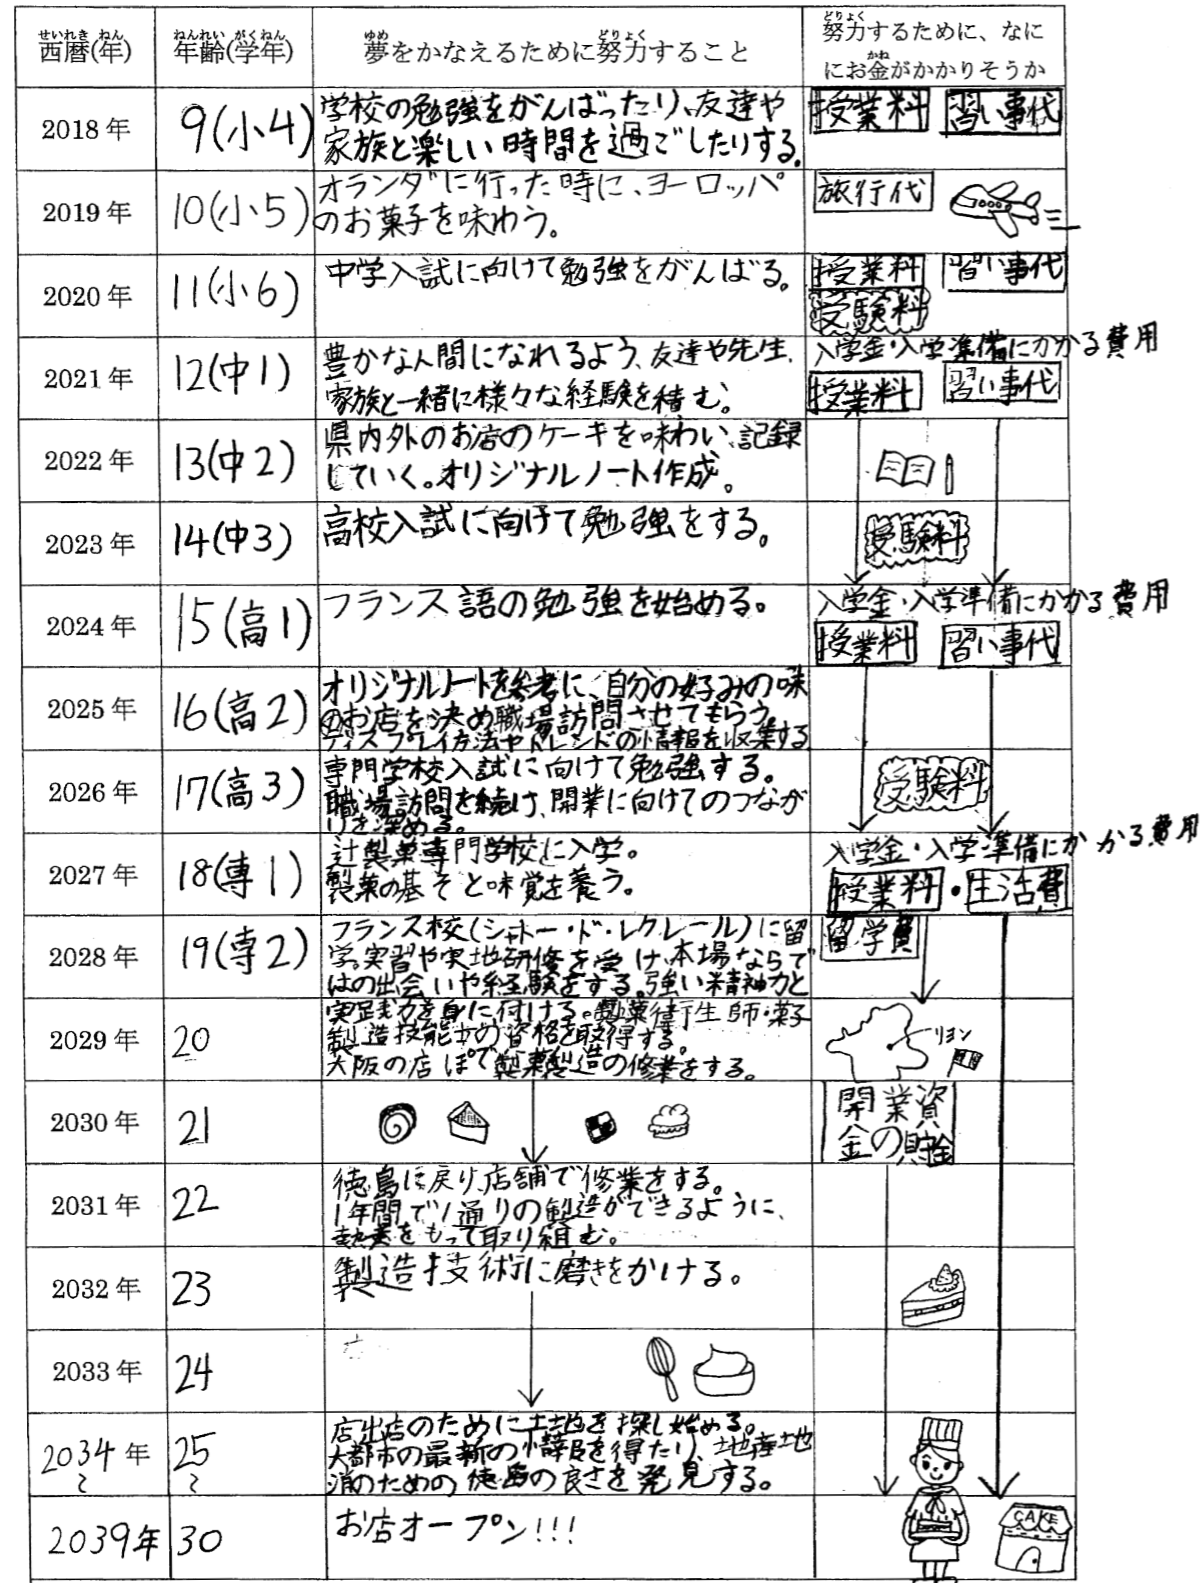 西暦(年) 年齢(学年) 夢をかなえるために努力すること 努力するために、なに
にお金がかかりそうか
2018年 9(小4) 学校の勉強をがんばったり、友達や
家族と楽しい時間を過ごしたりする。
授業料 習い事代
2019年 10(小5) オランダに行った時に、ヨーロッパ
のお菓子を味わう。
旅行代
2020年 11(小6) 中学入試に向けて勉強をがんばる。
授業料 習い事代
受験料
2021年 12(中1) 豊かな人間になれるよう、友達や先生、
家族と一緒に様々な経験を積む。
入学金・入学準備にかかる費用
授業料 習い事代
2022年 13(中2) 県内外のお店のケーキを味わい、記録
していく。オリジナルノート作成。
2023年 14(中3) 高校入試に向けて勉強をする。
受験料
2024年 15(高1) フランス語の勉強を始める。
入学金・入学準備にかかる費用
授業料 習い事代
2025年 16(高2) オリジナルノートを参考に、自分の好みの味
のお店を決め職場訪問させてもらう。
ディスプレイ方法やトレンドの情報を収集する
2026年 17(高3) 専門学校入試に向けて勉強する。
職場訪問を続け、開業に向けてのつなが
りを深める。
受験料
2027年 18(専1) 辻製菓専門学校に入学。
製菓の基そと味覚を養う。
入学金・入学準備にかかる費用
授業料・生活費
2028年 19(専2) フランス校(シャトー・ド・レクレール)に留
学。実習や実地研修を受け、本場ならで
はの出会いや経験をする。強い精神力と
留学費
2029年 20 実践力を身に付ける。製菓衛生師・菓子
製造技能士の資格を取得する。
大阪の店ぽで製菓製造の修業をする。
リヨン
2030年 21
開業資
金の貯金
2031年 22 徳島に戻り、店舗で修業をする。
1年間で1通りの製造ができるように、
熱意をもって取り組む。
2032年 23 製造技術に磨きをかける。
2033年 24
2034年 25 店出店のために土地を探し始める。
大都市の最新の情報を得たり、地産地
消のための徳島の良さを発見する。
〜 〜
2039年 30 お店オープン!!!
CAKE